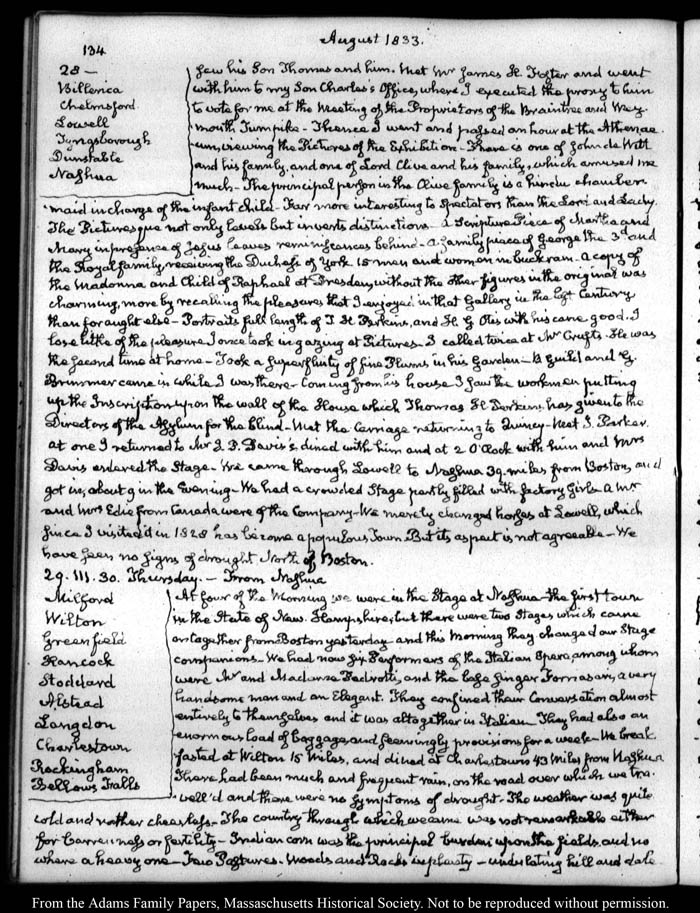 134
August 1833.
28 —
Billerica
Chelmsford.
Lowell
Tyngsborough
Dunstable
Nashua
saw his Son Thomas and him. Met Mr James H. Foster and went
with him to my Son Charles's Office, where I executed the proxy to him
to vote for me at the Meeting of the Proprietors of the Braintree and Wey-
mouth Turnpike — Thence I went and passed an hour at the Athenae-
um, viewing the Pictures of the Exhibition — There is one of John de Witt
and his family, and one of Lord Clive and his family, which amused me
much — The principal person in the Clive family is a hindu chamber-
maid in charge of the infant Child — Far more interesting to Spectators than the Lord and Lady.
The Picturesque not only levels but inverts distinctions — a Scripture Piece of Martha and
Mary in presence of Jesus leaves reminiscences behind — a family piece of George the 3d and
the Royal family, receiving the Duchess of York. 15 men and women in buckram — a copy of
the Madonna and Child of Raphael at Dresden, without the other figures in the original was
charming, more by recalling the pleasures that I enjoyed in that Gallery in the last Century
than for aught else — Portraits full length of T. H. Perkins, and H. G. Otis with his cane good. I
lose little of the pleasure I once took in gazing at Pictures. I called twice at Mr Crufts. He was
the second time at home — Took a superfluity of fine Plums in his Garden — B Guild and G.
Brimmer came in while I was there — Coming from his house I saw the workmen putting
up the Inscription upon the wall of the House which Thomas H. Perkins has given to the
Directors of the Asylum for the blind — Met the Carriage returning to Quincy — Met I. Parker.
at one I returned to Mr I. P. Davis's dined with him and at 2 O'Clock with him and Mrs
Davis entered the Stage — We came through Lowell to Nashua 39 miles from Boston, and
got in, about 9 in the Evening — We had a crowded Stage partly filled with factory Girls — a Mr
and Mrs Edie from Canada were of the Company — We merely changed horses at Lowell, which
since I visited it in 1828 has become a populous Town But its aspect is not agreeable — We
have seen no signs of drought North of Boston.
29. III. 30. Thursday. — From Nashua
Milford
Wilton
Greenfield
Hancock
Stoddard
Alstead
Langdon
Charlestown
Rockingham
Bellows Falls
At four of the Morning we were in the Stage at Nashua — the first town
in the State of New Hampshire; but there were two Stages which came
on together from Boston yesterday — and this Morning they changed our Stage
companions — We had now six Performers of the Italian Opera, among whom
were Mr and Madame Pedrotti, and the base singer Fornasari, a very
handsome man and an Elegant. They confined their Conversation almost
entirely to themselves and it was altogether in Italian. They had also an
enormous load of baggage, and seemingly provisions for a week — We break-
fasted at Wilton 15 Miles, and dined at Charlestown 43 Miles from Nashua
There had been much and frequent rain, on the road over which we tra-
vell'd and there were no symptoms of drought — The weather was quite
cold and rather cheerless — The country through which we came was not remarkable either
for barrenness or fertility — Indian corn was the principal burden upon the fields, and no
where a heavy one — Few Pastures. Woods and Rocks in plenty — undulating hill and dale
From the Adams Family Papers, Massachusetts Historical Society. Not to be reproduced without permission.